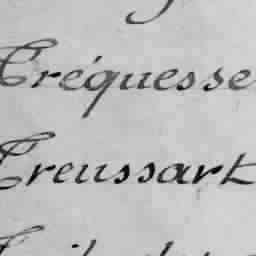 Tréquesse
Treussart